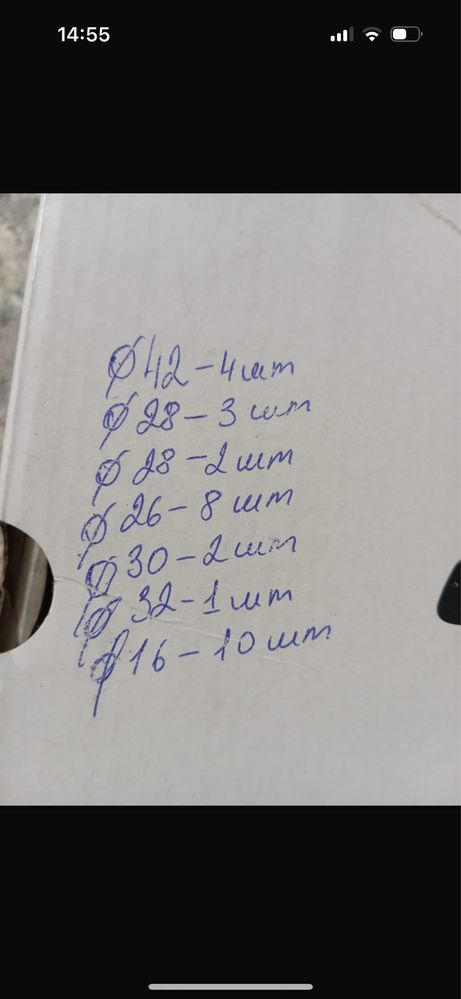 14:55
Ø 42 - 4 шт
Ø 28 - 3 шт
Ø 28 - 2 шт
Ø 26 - 8 шт
Ø 30 - 2 шт
Ø 32 - 1 шт
Ø 16 - 10 шт